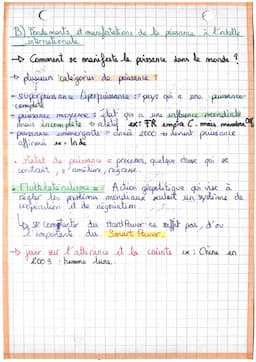 B) Fondements et manifestations de la puissance à l'échelle
internationale.
→ Comment se manifeste la puissance dans le monde ?
→ plusieurs catégories de puissance ?
- superpuissance / hyperpuissance : pays qui a une puissance
complète
- puissance moyenne : état qui a une influence mondiale
mais incomplète
- puissance émergente : années 2000 → devient puissance
affirmée ex : Inde
• statut de puissance = processus, quelque chose qui se
construit, s'améliore, régresse.
- Multilatéralisme = Action géopolitique qui vise à
régler les problèmes mondiaux suivant un système de
coopération et de négociation
↳ se contenter du Hard Power ne suffit pas, d'où
l'importance du Smart Power.
→ jouer sur l'attirance et la crainte ex : Chine en
2003 : homme lune.